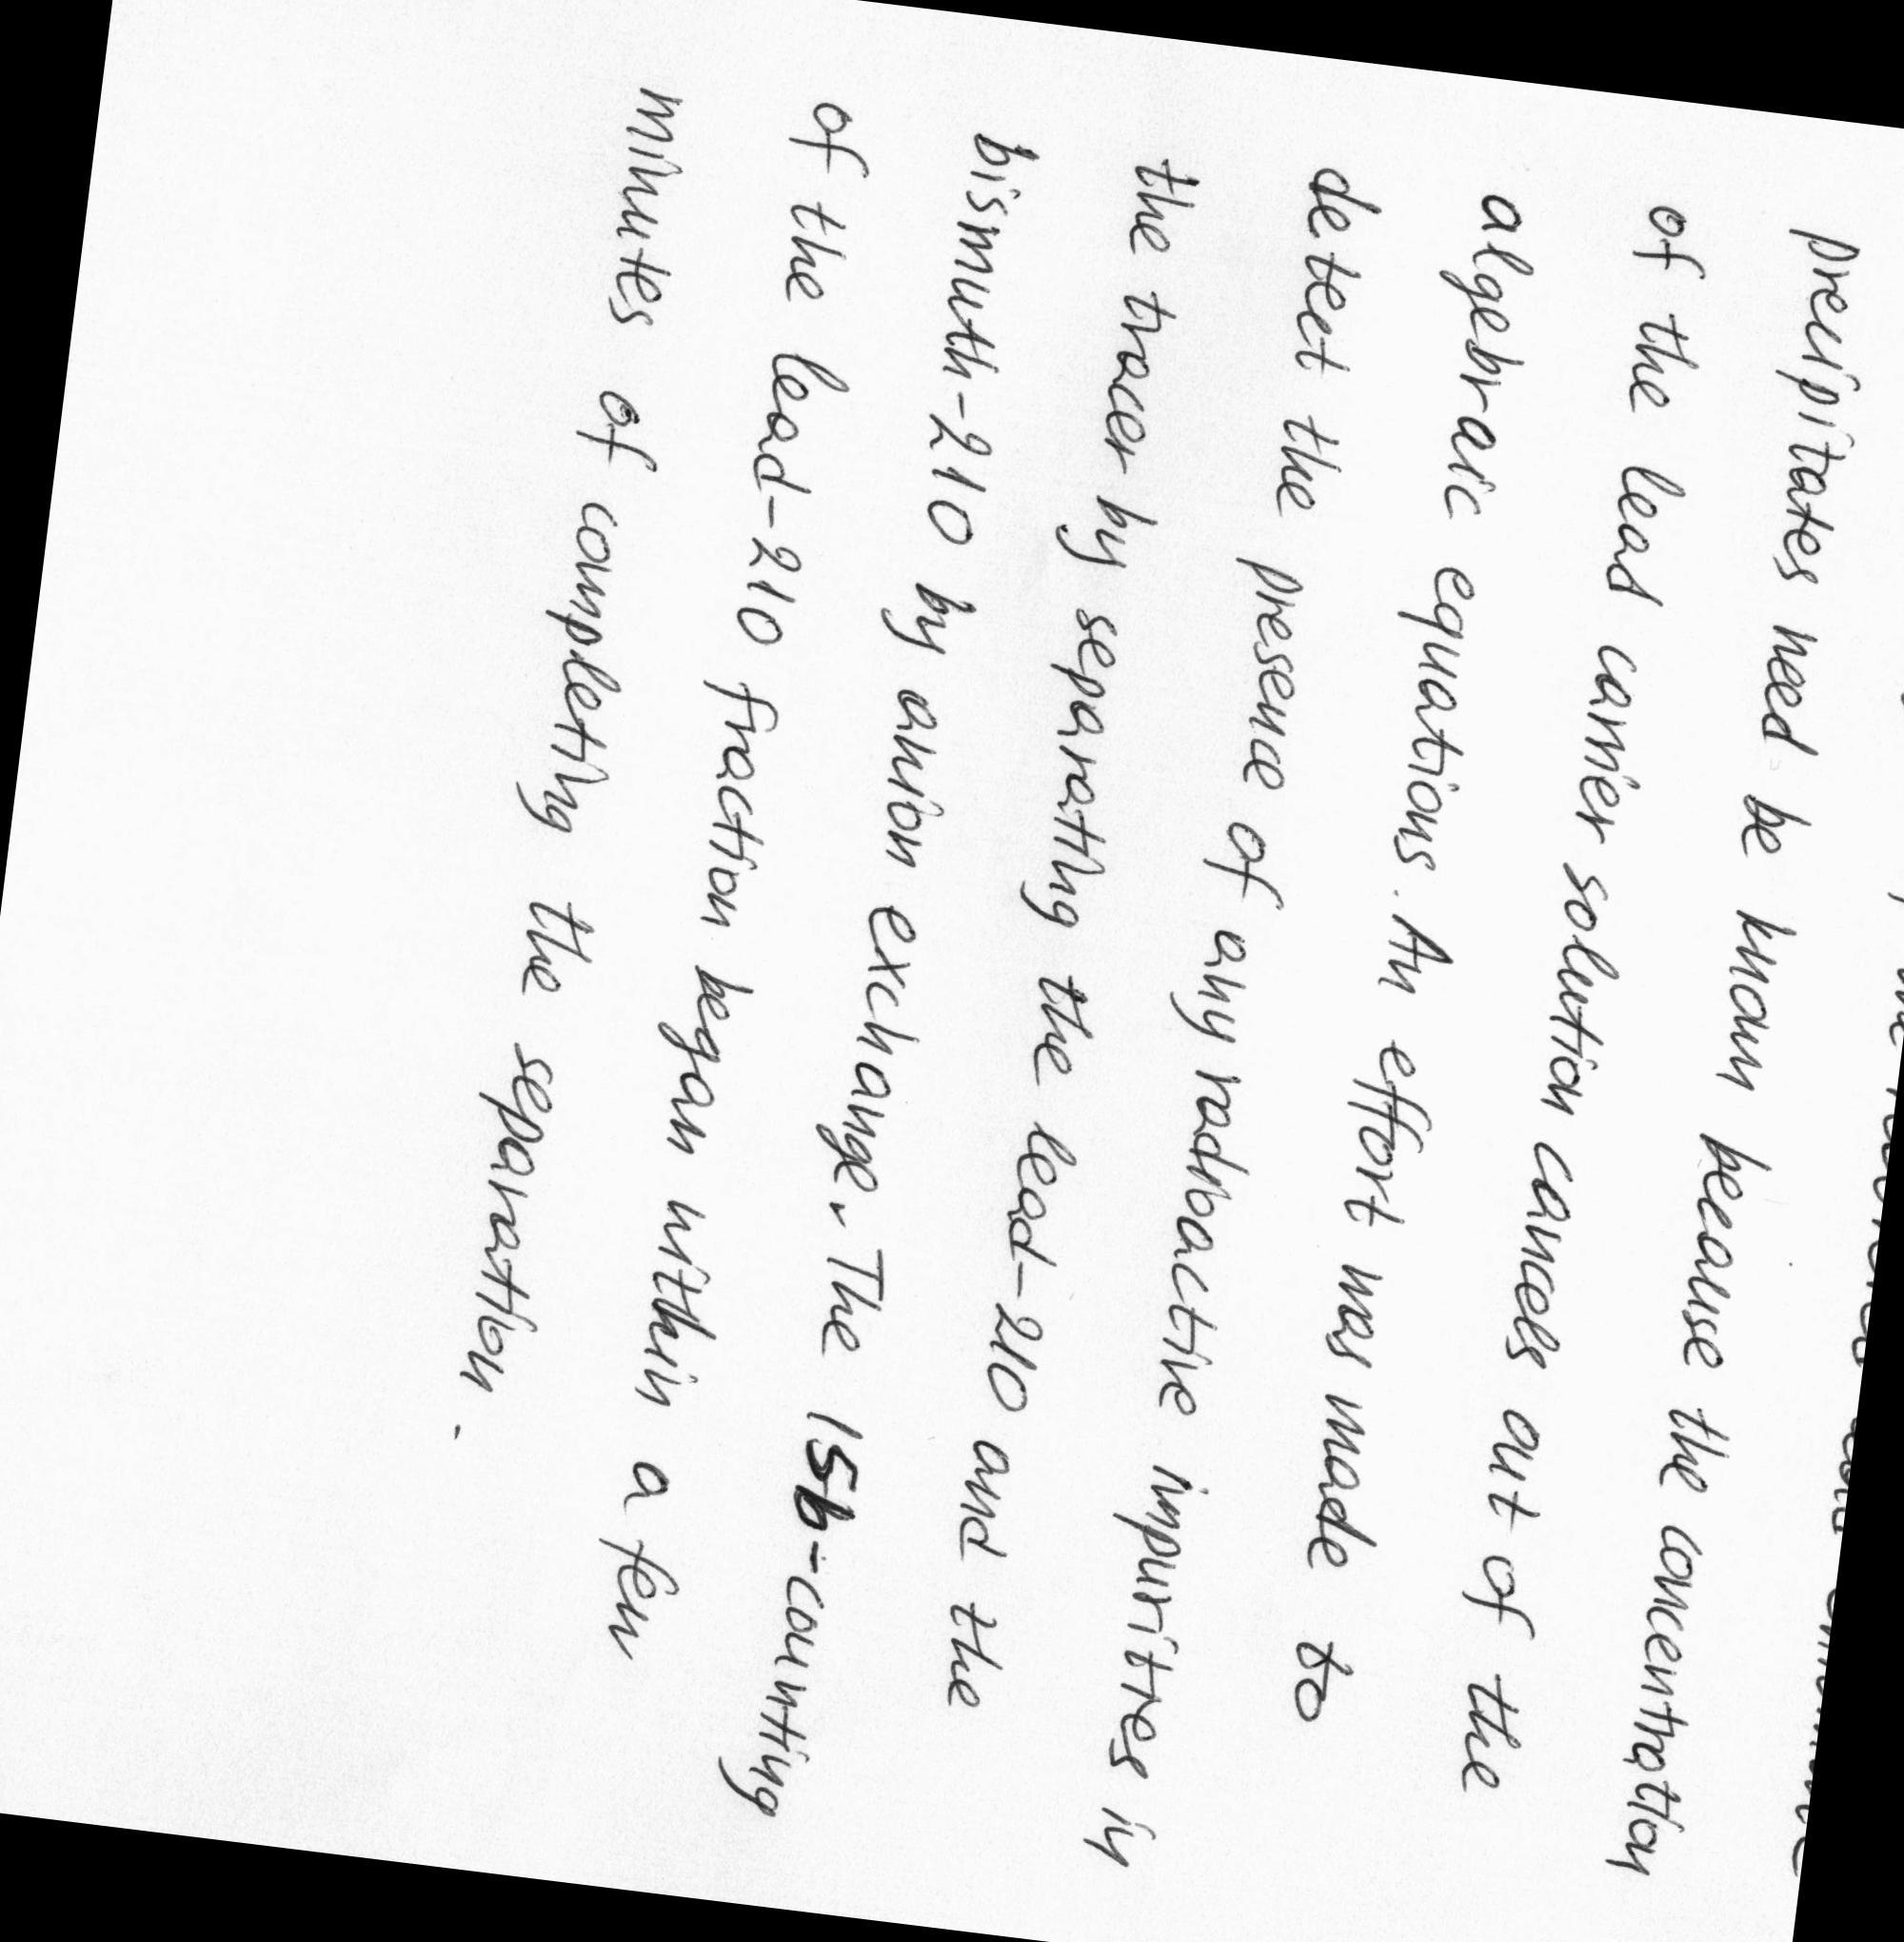 precipitates need be known because the concentration
of the lead carrier solution cancels out of the
algebraic equations. An effort was made to
detect the presence of any radioactive impurities in
the tracer by separating the lead-210 and the
bismuth-210 by anion exchange. The 15b-counting
of the lead-210 fraction began within a few
minutes of completing the separation.